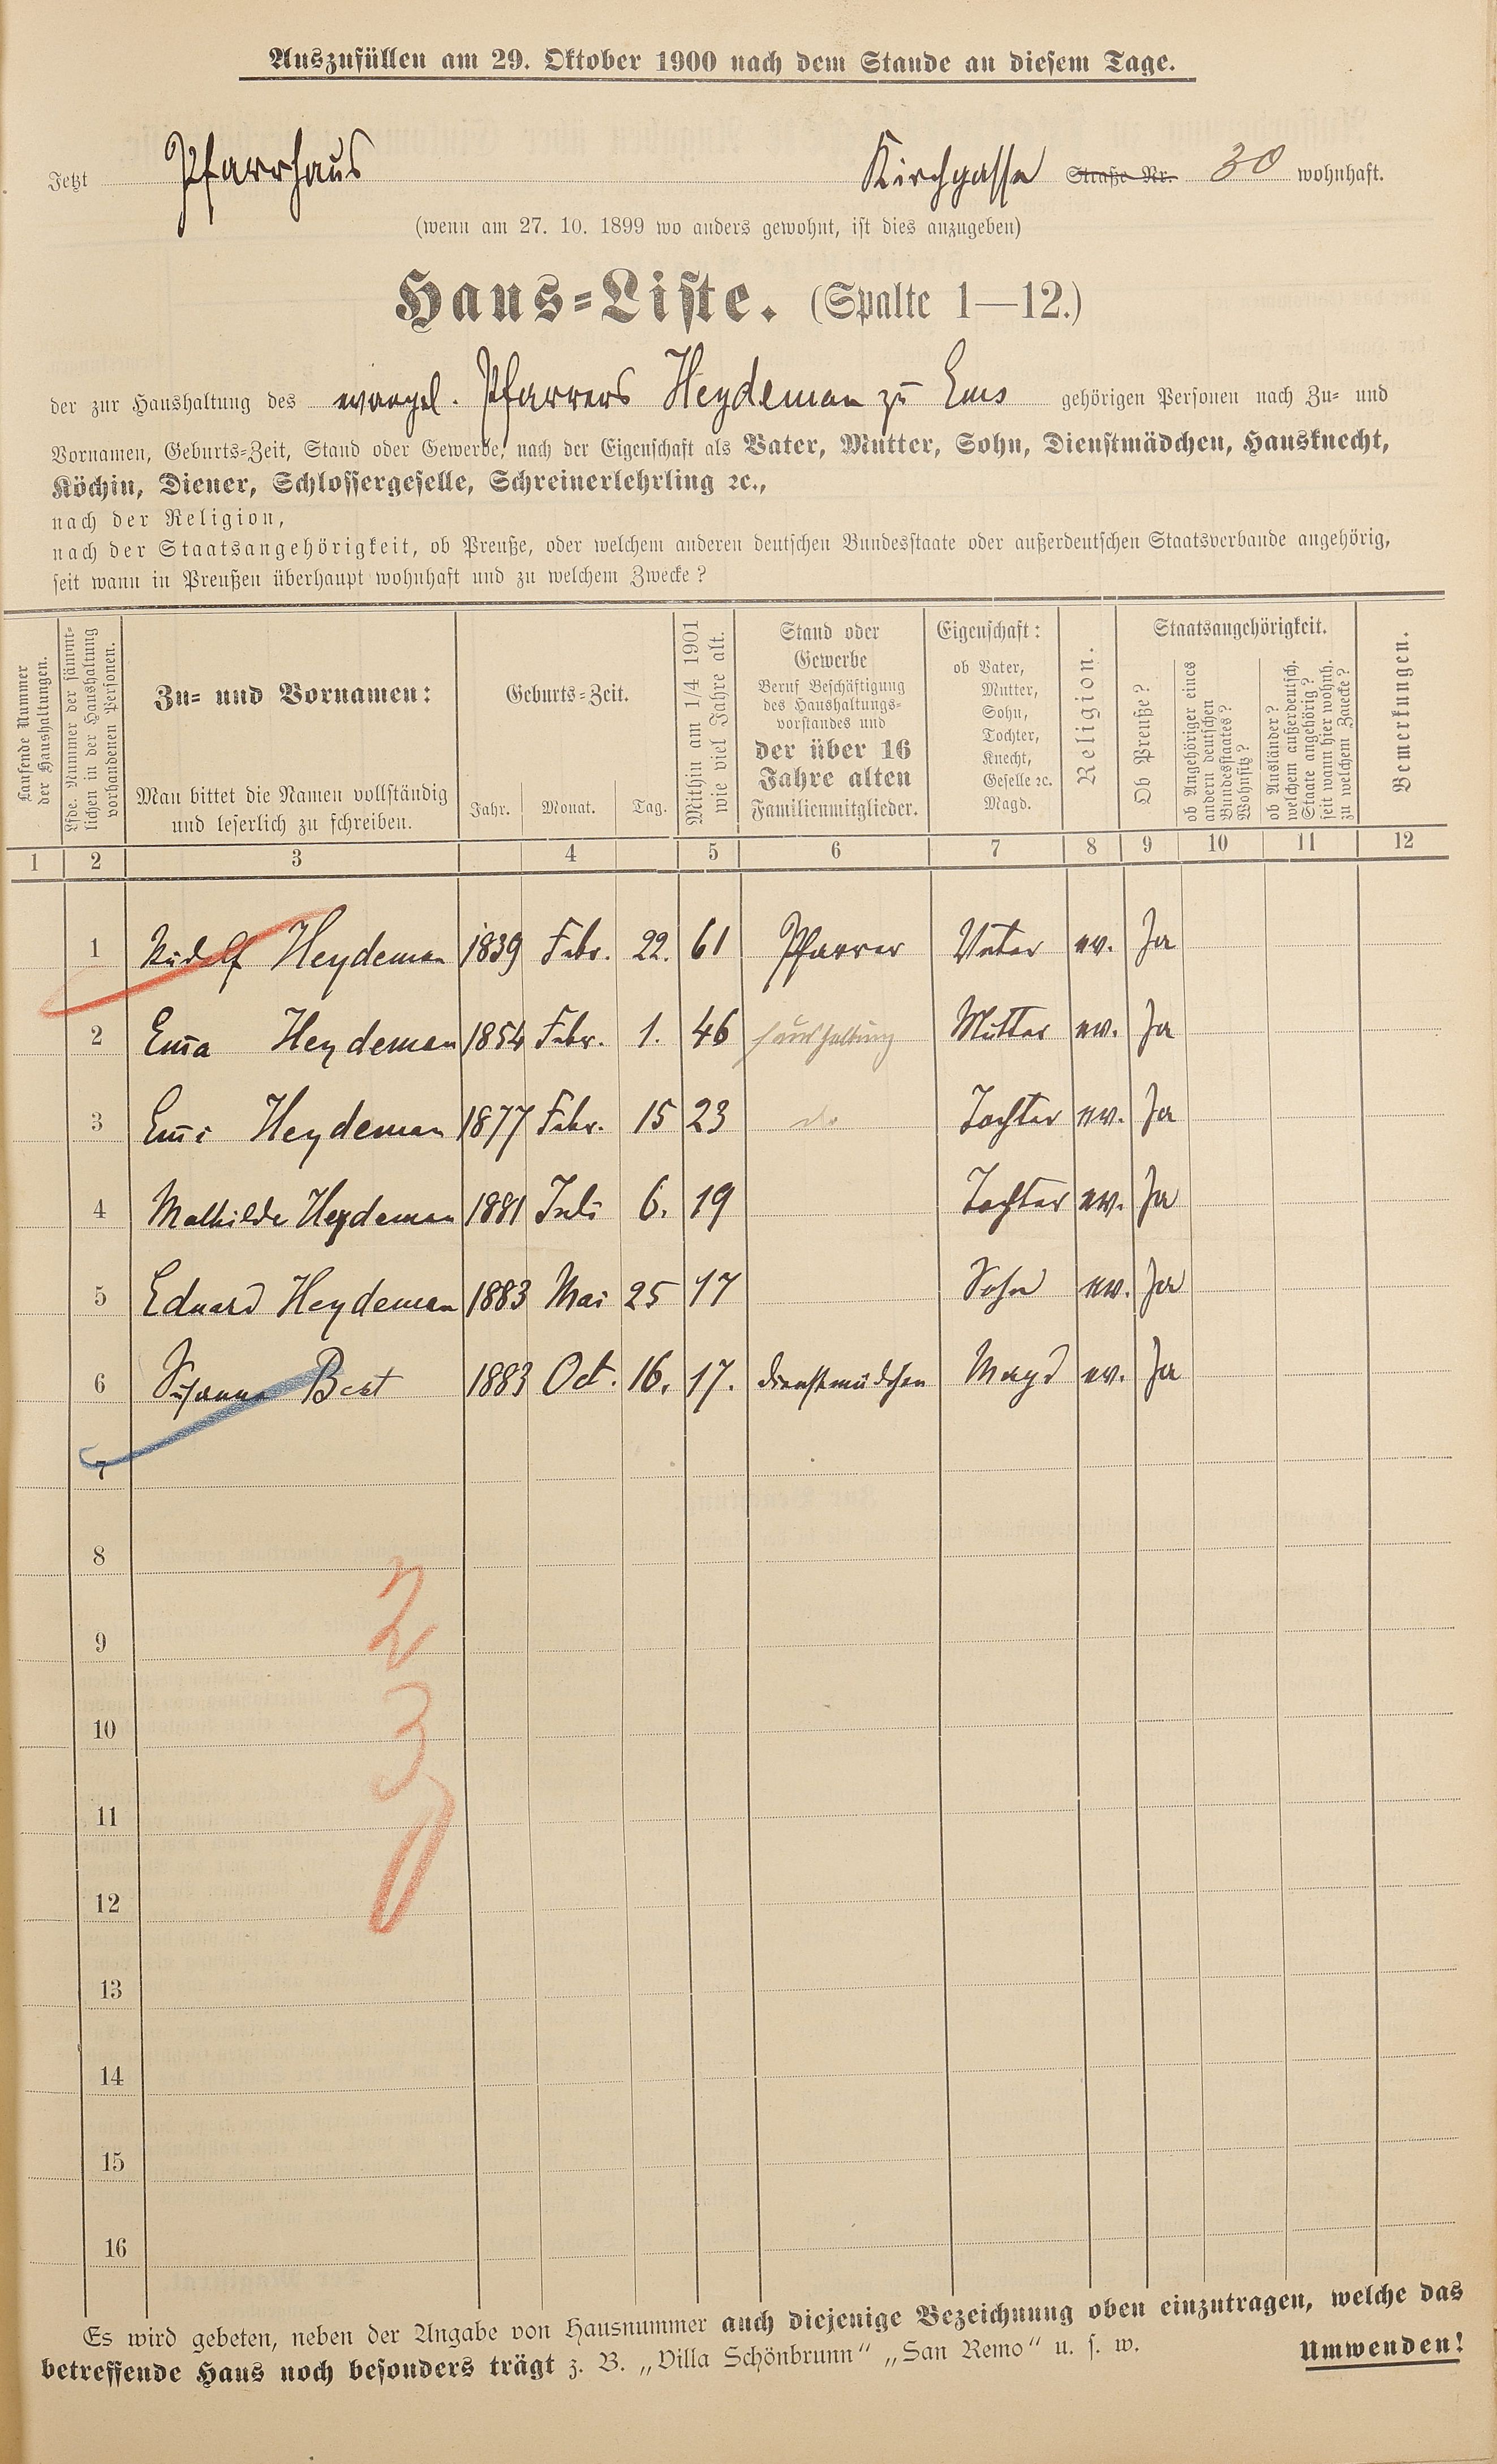 Auszufüllen am 29. Oktober 1900 nach dem Stande an diesem Tage.
Jetzt Pfarrhaus Kirchgasse Straße Nr. 30 wohnhaft.
(wenn am 27. 10. 1899 wo anders gewohnt, ist dies anzugeben)
Haus-Liste. (Spalte 1—12.)
der zur Haushaltung des evangel. Pfarrers Heydeman zu Ems gehörigen Personen nach Zu- und
Vornamen, Geburts-Zeit, Stand oder Gewerbe, nach der Eigenschaft als Vater, Mutter, Sohn, Dienstmädchen, Hausknecht,
Köchin, Diener, Schlossergeselle, Schreinerlehrling ꝛc.,
nach der Religion,
nach der Staatsangehörigkeit, ob Preuße, oder welchem anderen deutschen Bundesstaate oder außerdeutschen Staatsverbande angehörig,
seit wann in Preußen überhaupt wohnhaft und zu welchem Zwecke?
Laufende Nummer
der Haushaltungen.
Lfde. Nummer der sämmt-
lichen in der Haushaltung
vorhandenen Personen.
Zu- und Vornamen:
Man bittet die Namen vollständig
und leserlich zu schreiben.
Geburts-Zeit.
Jahr. Monat. Tag.
Mithin am 1/4 1901
wie viel Jahre alt.
Stand oder
Gewerbe
Beruf Beschäftigung
des Haushaltungs-
vorstandes und
der über 16
Jahre alten
Familienmitglieder.
Eigenschaft:
ob Vater,
Mutter,
Sohn,
Tochter,
Knecht,
Geselle ꝛc.
Magd.
Religion.
Staatsangehörigkeit.
Ob Preuße?
ob Angehöriger eines
andern deutschen
Bundesstaates?
Wohnsitz?
ob Ausländer?
welchem außerdeutsch.
Staate angehörig?
seit wann hier wohnh.
zu welchem Zwecke?
Bemerkungen.
1 2 3 4 5 6 7 8 9 10 11 12
1 Rudolf Heydeman 1839 Febr. 22. 61 Pfarrer Vater ev. Ja
2 Em̅a Heydeman 1854 Febr. 1. 46 Haushaltung Mutter ev. Ja
3 Em̅i Heydeman 1877 Febr. 15 23 do Tochter ev. Ja
4 Mathilde Heydeman 1881 Juli 6. 19 Tochter ev. Ja
5 Eduard Heydeman 1883 Mai 25 17 Sohn ev. Ja
6 Susanna Best 1883 Oct. 16. 17. Dienstmädchen Magd ev. Ja
7
8
2
9
10
3
11
12
13
14
15
16
Es wird gebeten, neben der Angabe von Hausnummer auch diejenige Bezeichnung oben einzutragen, welche das
betreffende Haus noch besonders trägt z. B. „Villa Schönbrunn“ „San Remo“ u. s. w.
Umwenden!